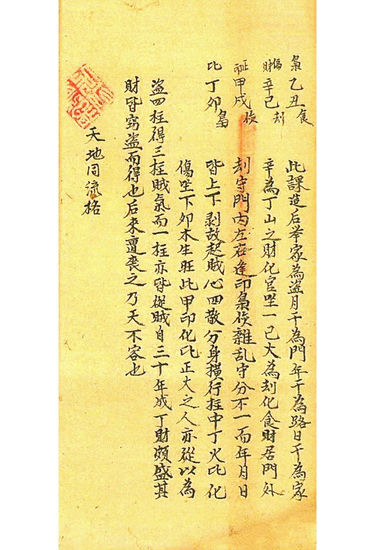 梟乙丑食
傷財辛己刦
甲戌殺
比丁卯梟
此課造后举家為盜月干為門年干為路日干為家
辛為丁山之財化官坐一己大為刦化食財居門外
刦守門内左右逢印梟殺雜乱守分不一而年月日
皆上下剥故起賊心四散分身横行拄中丁火比化
傷坐下卯木生旺此甲印化比正大之人亦從以為
盜四柱得三柱賊氣而一柱亦皆從賊自三十年成丁財頗盛其
財皆窃盜而得也后来遭喪之乃天不容也
天地同流格